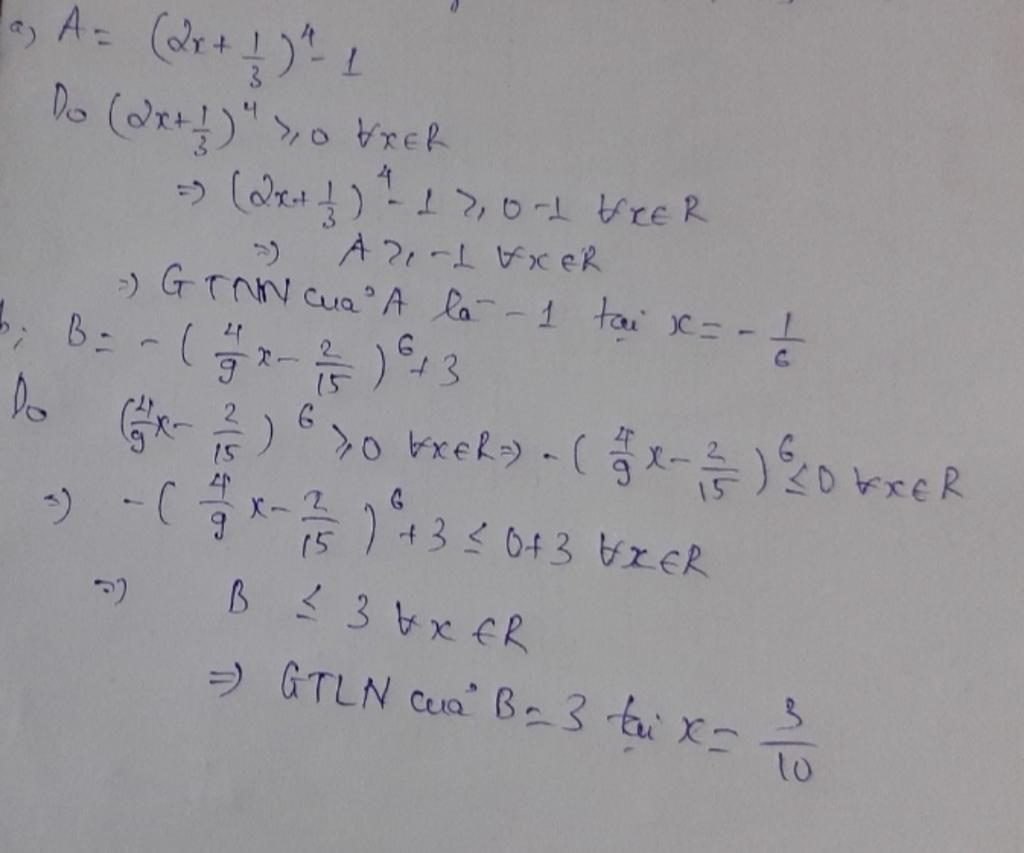 a, A = (2x + 1/3)^4 - 1
Do (2x + 1/3)^4 ≥ 0 ∀x∈R
=> (2x + 1/3)^4 - 1 ≥ 0 - 1 ∀x∈R
=> A ≥ -1 ∀x∈R
=> GTNN của A là -1 tại x = - 1/6
b; B = - (4/9 x - 2/15)^6 + 3
Do (4/9 x - 2/15)^6 ≥ 0 ∀x∈R => - (4/9 x - 2/15)^6 ≤ 0 ∀x∈R
=> - (4/9 x - 2/15)^6 + 3 ≤ 0 + 3 ∀x∈R
=> B ≤ 3 ∀x∈R
=> GTLN của B = 3 tại x = 3/10